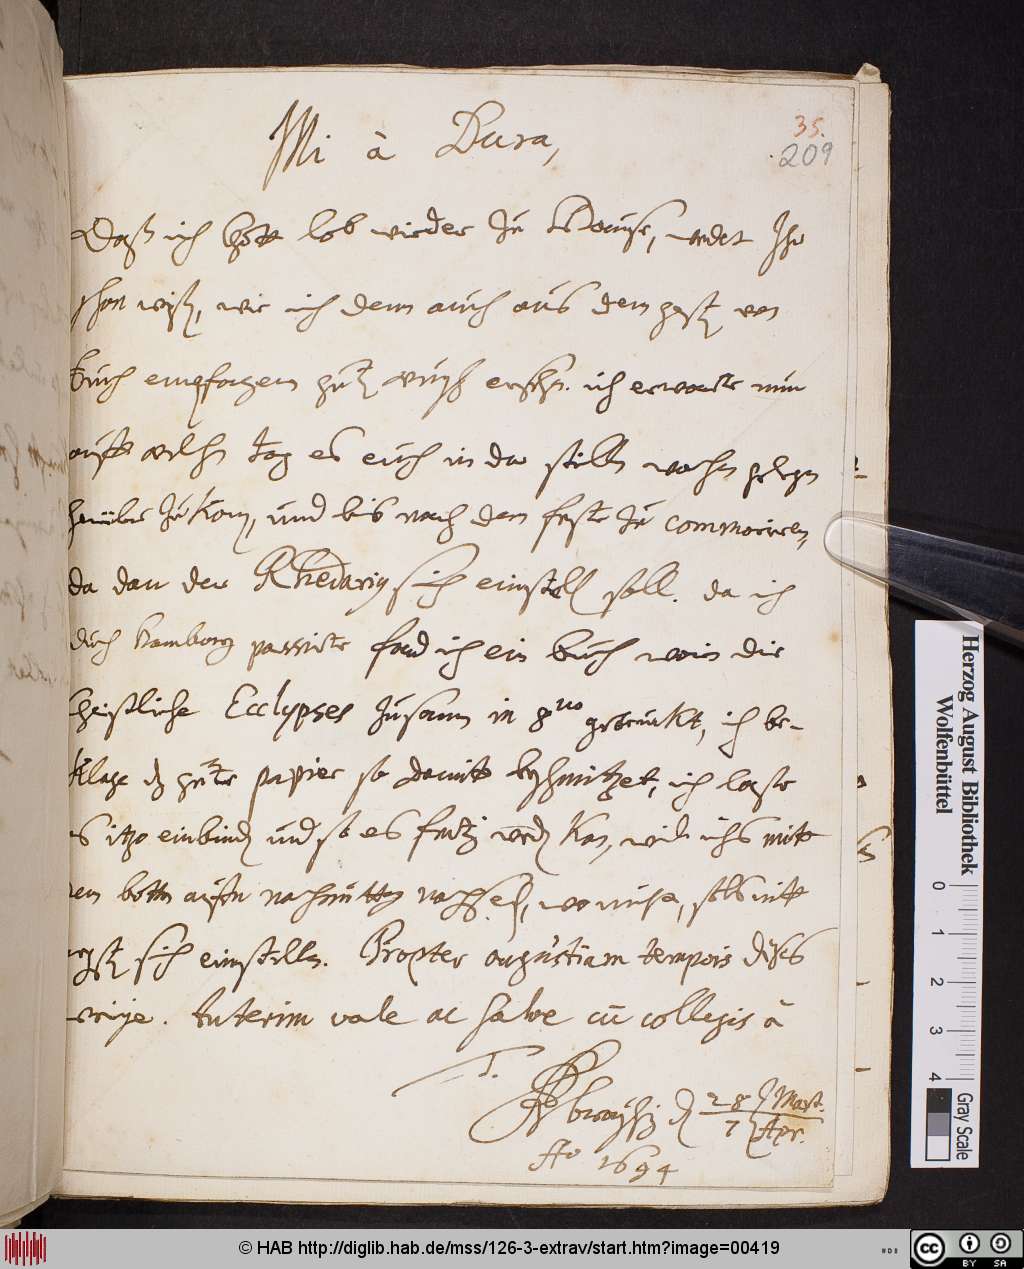 35.
209
Mi à Dura,
Daß ich Gott lob wieder zu Hause, werdet Ihr
schon wißen, wie ich denn auch aus dem von
Euch empfangen ich erwarte nun
auff welchen tag es euch in der stillen wochen gelegen
herüber zu komen, und bis nach dem feste zu commoriren,
da dan der Rhedarius sich einstellen soll. da ich
durch Hamborg passirte fand ich ein buch worin die
geistliche Ecclypses zusamn in 8vo getruckt, ich be-
klage dz gute papier so damitt beschmitzet, ich laße
es itzo einbinden und so es fertig werden kan, will ichs mitt
dem botten
sich einstellen. Propter angustiam temporis dieses
wenige. Interim vale ac salve cū collegis à
T.
d 28 Mart.
7 Apr.
Ao 1694
Herzog August Bibliothek
Wolfenbüttel
0 1 2 3 4
Gray Scale
© HAB http://diglib.hab.de/mss/126-3-extrav/start.htm?image=00419
cc BY SA